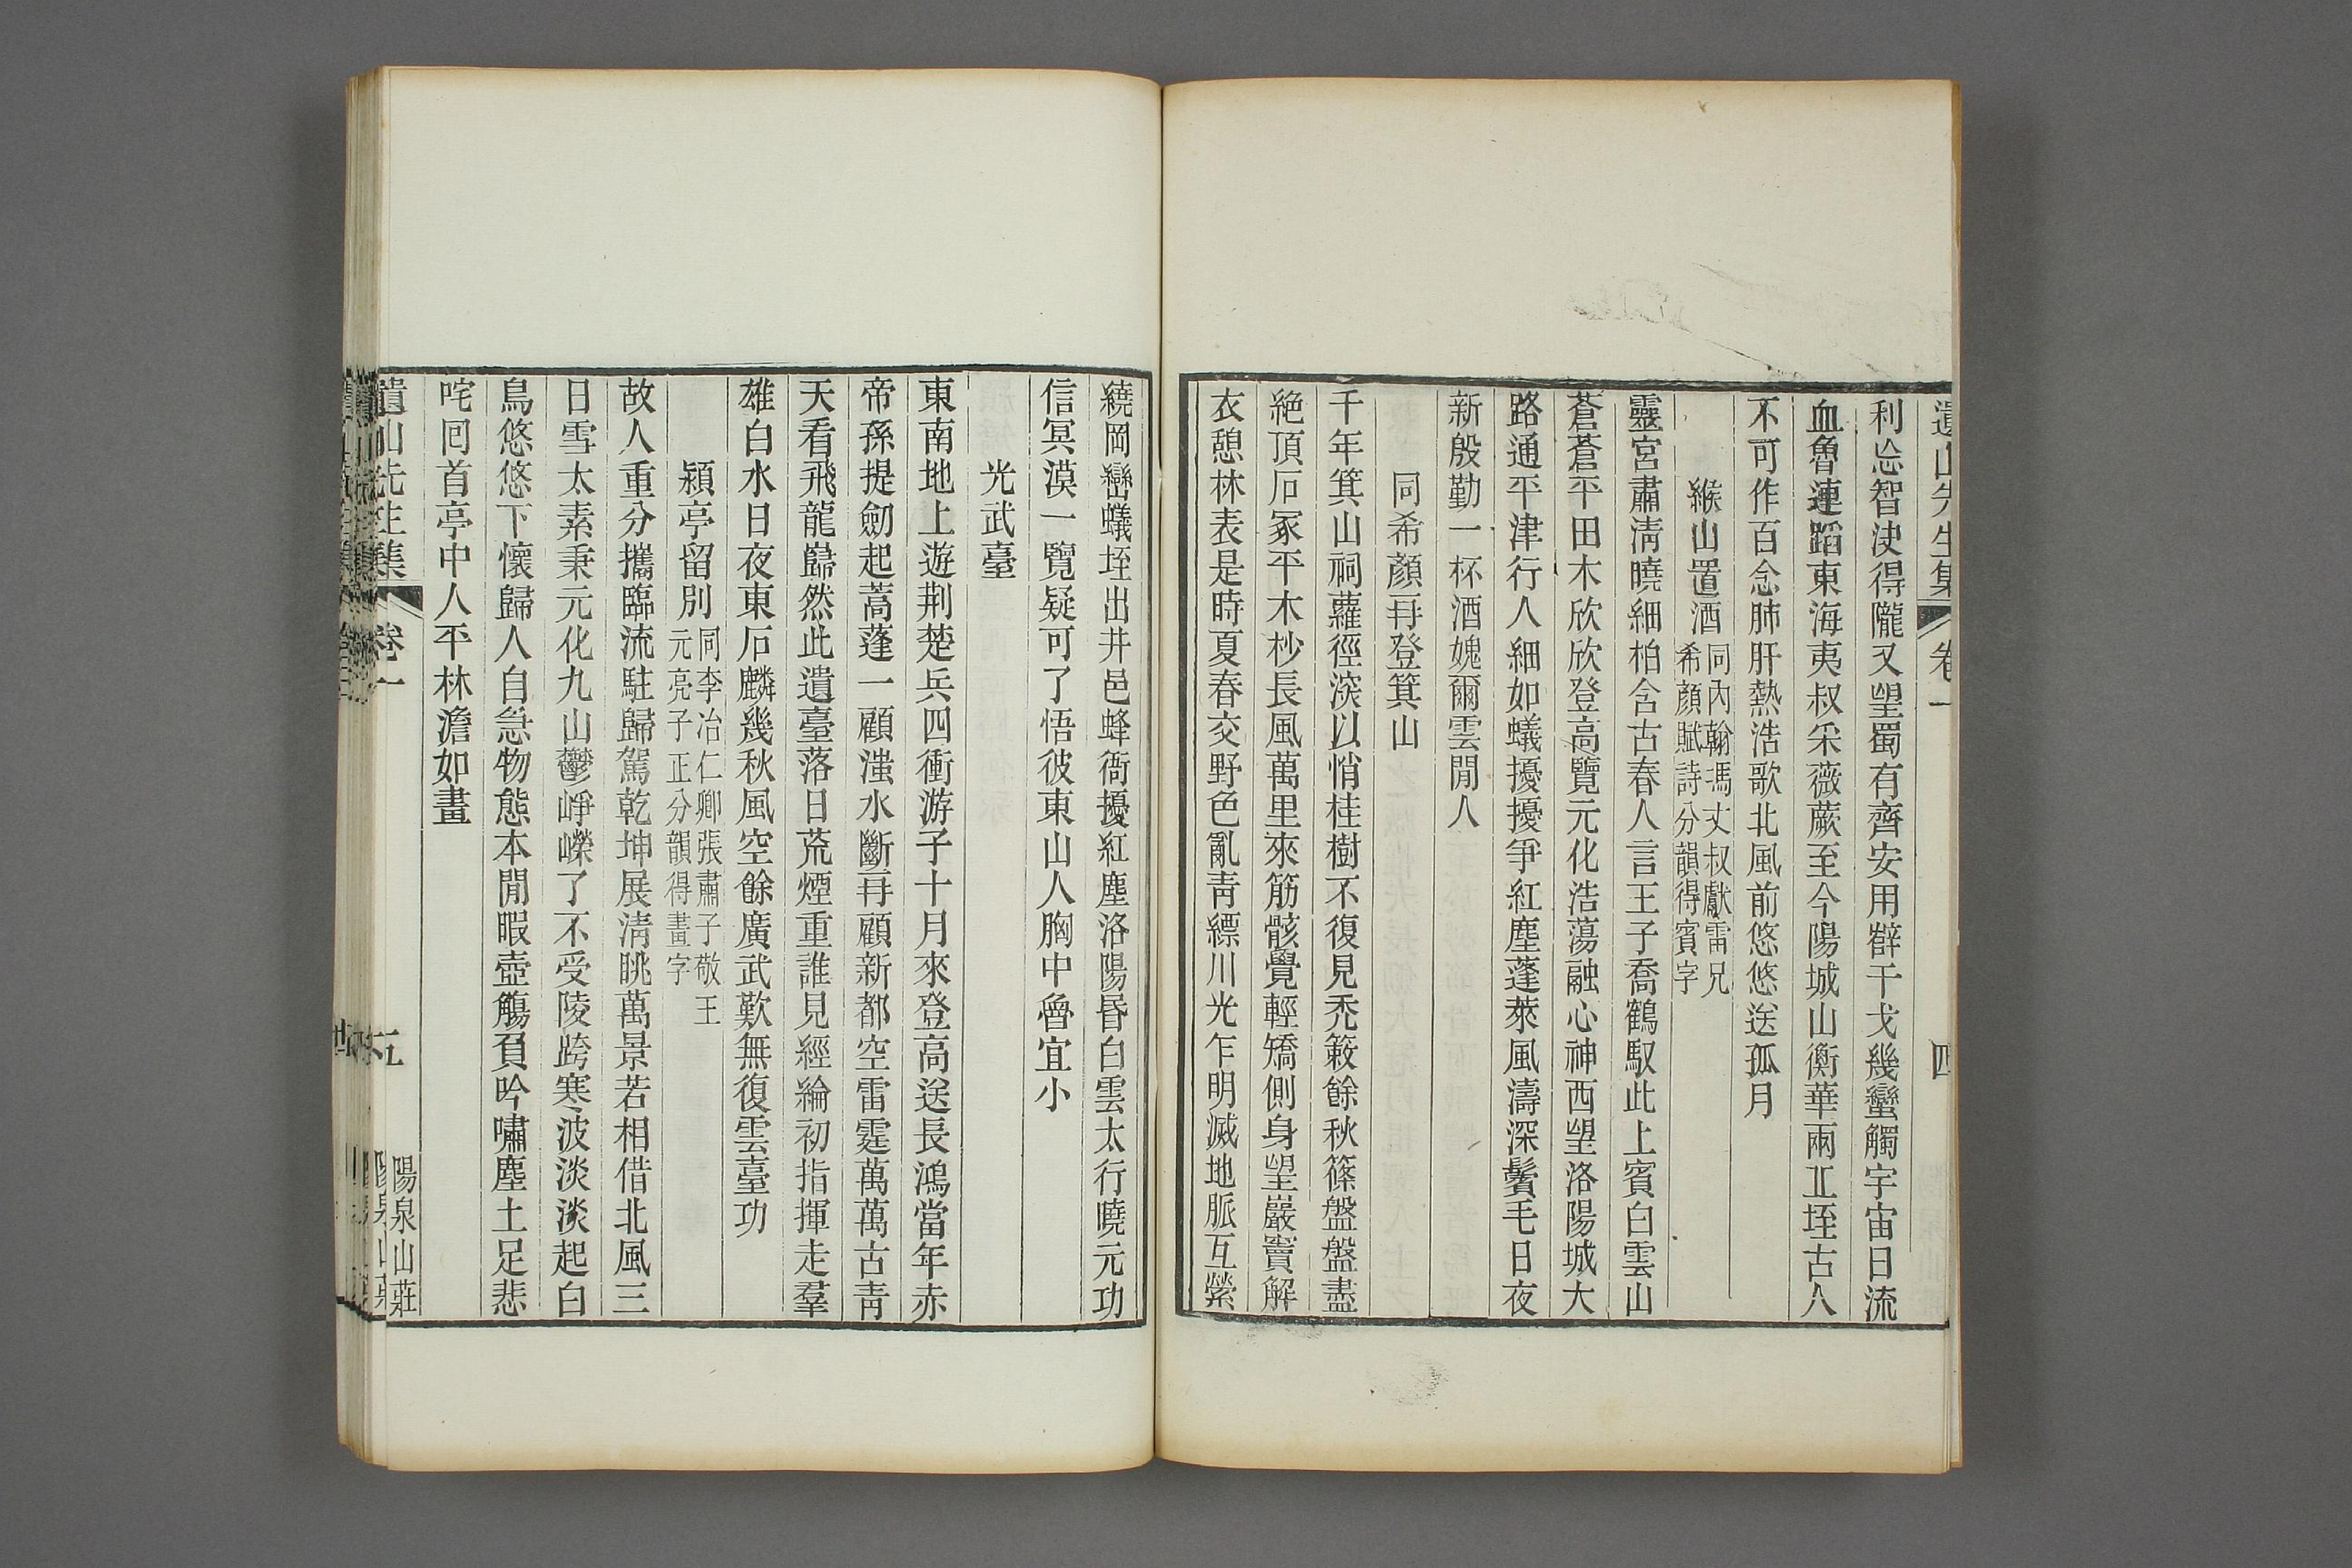 遺山先生集 卷一 四
利忩智決得隴又望蜀有齊安用辥干戈幾蠻觸宇宙日流
血魯連蹈東海夷叔采薇蕨至今陽城山衡華兩丠垤古人
不可作百念肺肝熱浩歌北風前悠悠送孤月
緱山置酒
同內翰馮丈叔獻雷兄
希顏賦詩分韻得賓字
靈宮肅淸曉細柏含古春人言王子喬鶴馭此上賓白雲山
蒼蒼平田木欣欣登高覽元化浩蕩融心神西望洛陽城大
路通平津行人細如蟻擾擾爭紅塵蓬萊風濤深鬢毛日夜
新殷勤一杯酒媿爾雲閒人
同希顏再登箕山
千年箕山祠蘿徑深以悄桂樹不復見禿簌餘秋篠盤盤盡
絶頂石冢平木杪長風萬里來筋骸覺輕矯側身望巖竇解
衣憩林表是時夏春交野色亂靑縹川光乍明滅地脈互縈
繞岡巒蟻垤出井邑蜂衙擾紅塵洛陽昬白雲太行曉元功
信冥漠一覽疑可了悟彼東山人胸中魯宜小
光武臺
東南地上遊荆楚兵四衝游子十月來登高送長鴻當年赤
帝孫提劒起蒿蓬一顧滍水斷再顧新都空雷霆萬萬古靑
天看飛龍巋然此遺臺落日荒煙重誰見經綸初指揮走羣
雄白水日夜東石麟幾秋風空餘廣武歎無復雲臺功
潁亭留別
同李冶仁卿張肅子敬王
元亮子正分韻得畫字
故人重分攜臨流駐歸駕乾坤展淸眺萬景若相借北風三
日雪太素秉元化九山鬱崢嶸了不受陵跨寒波淡淡起白
鳥悠悠下懷歸人自急物態本閒暇壺觴負吟嘯塵土足悲
咤回首亭中人平林澹如畫
遺山先生集 卷一 五 陽泉山莊